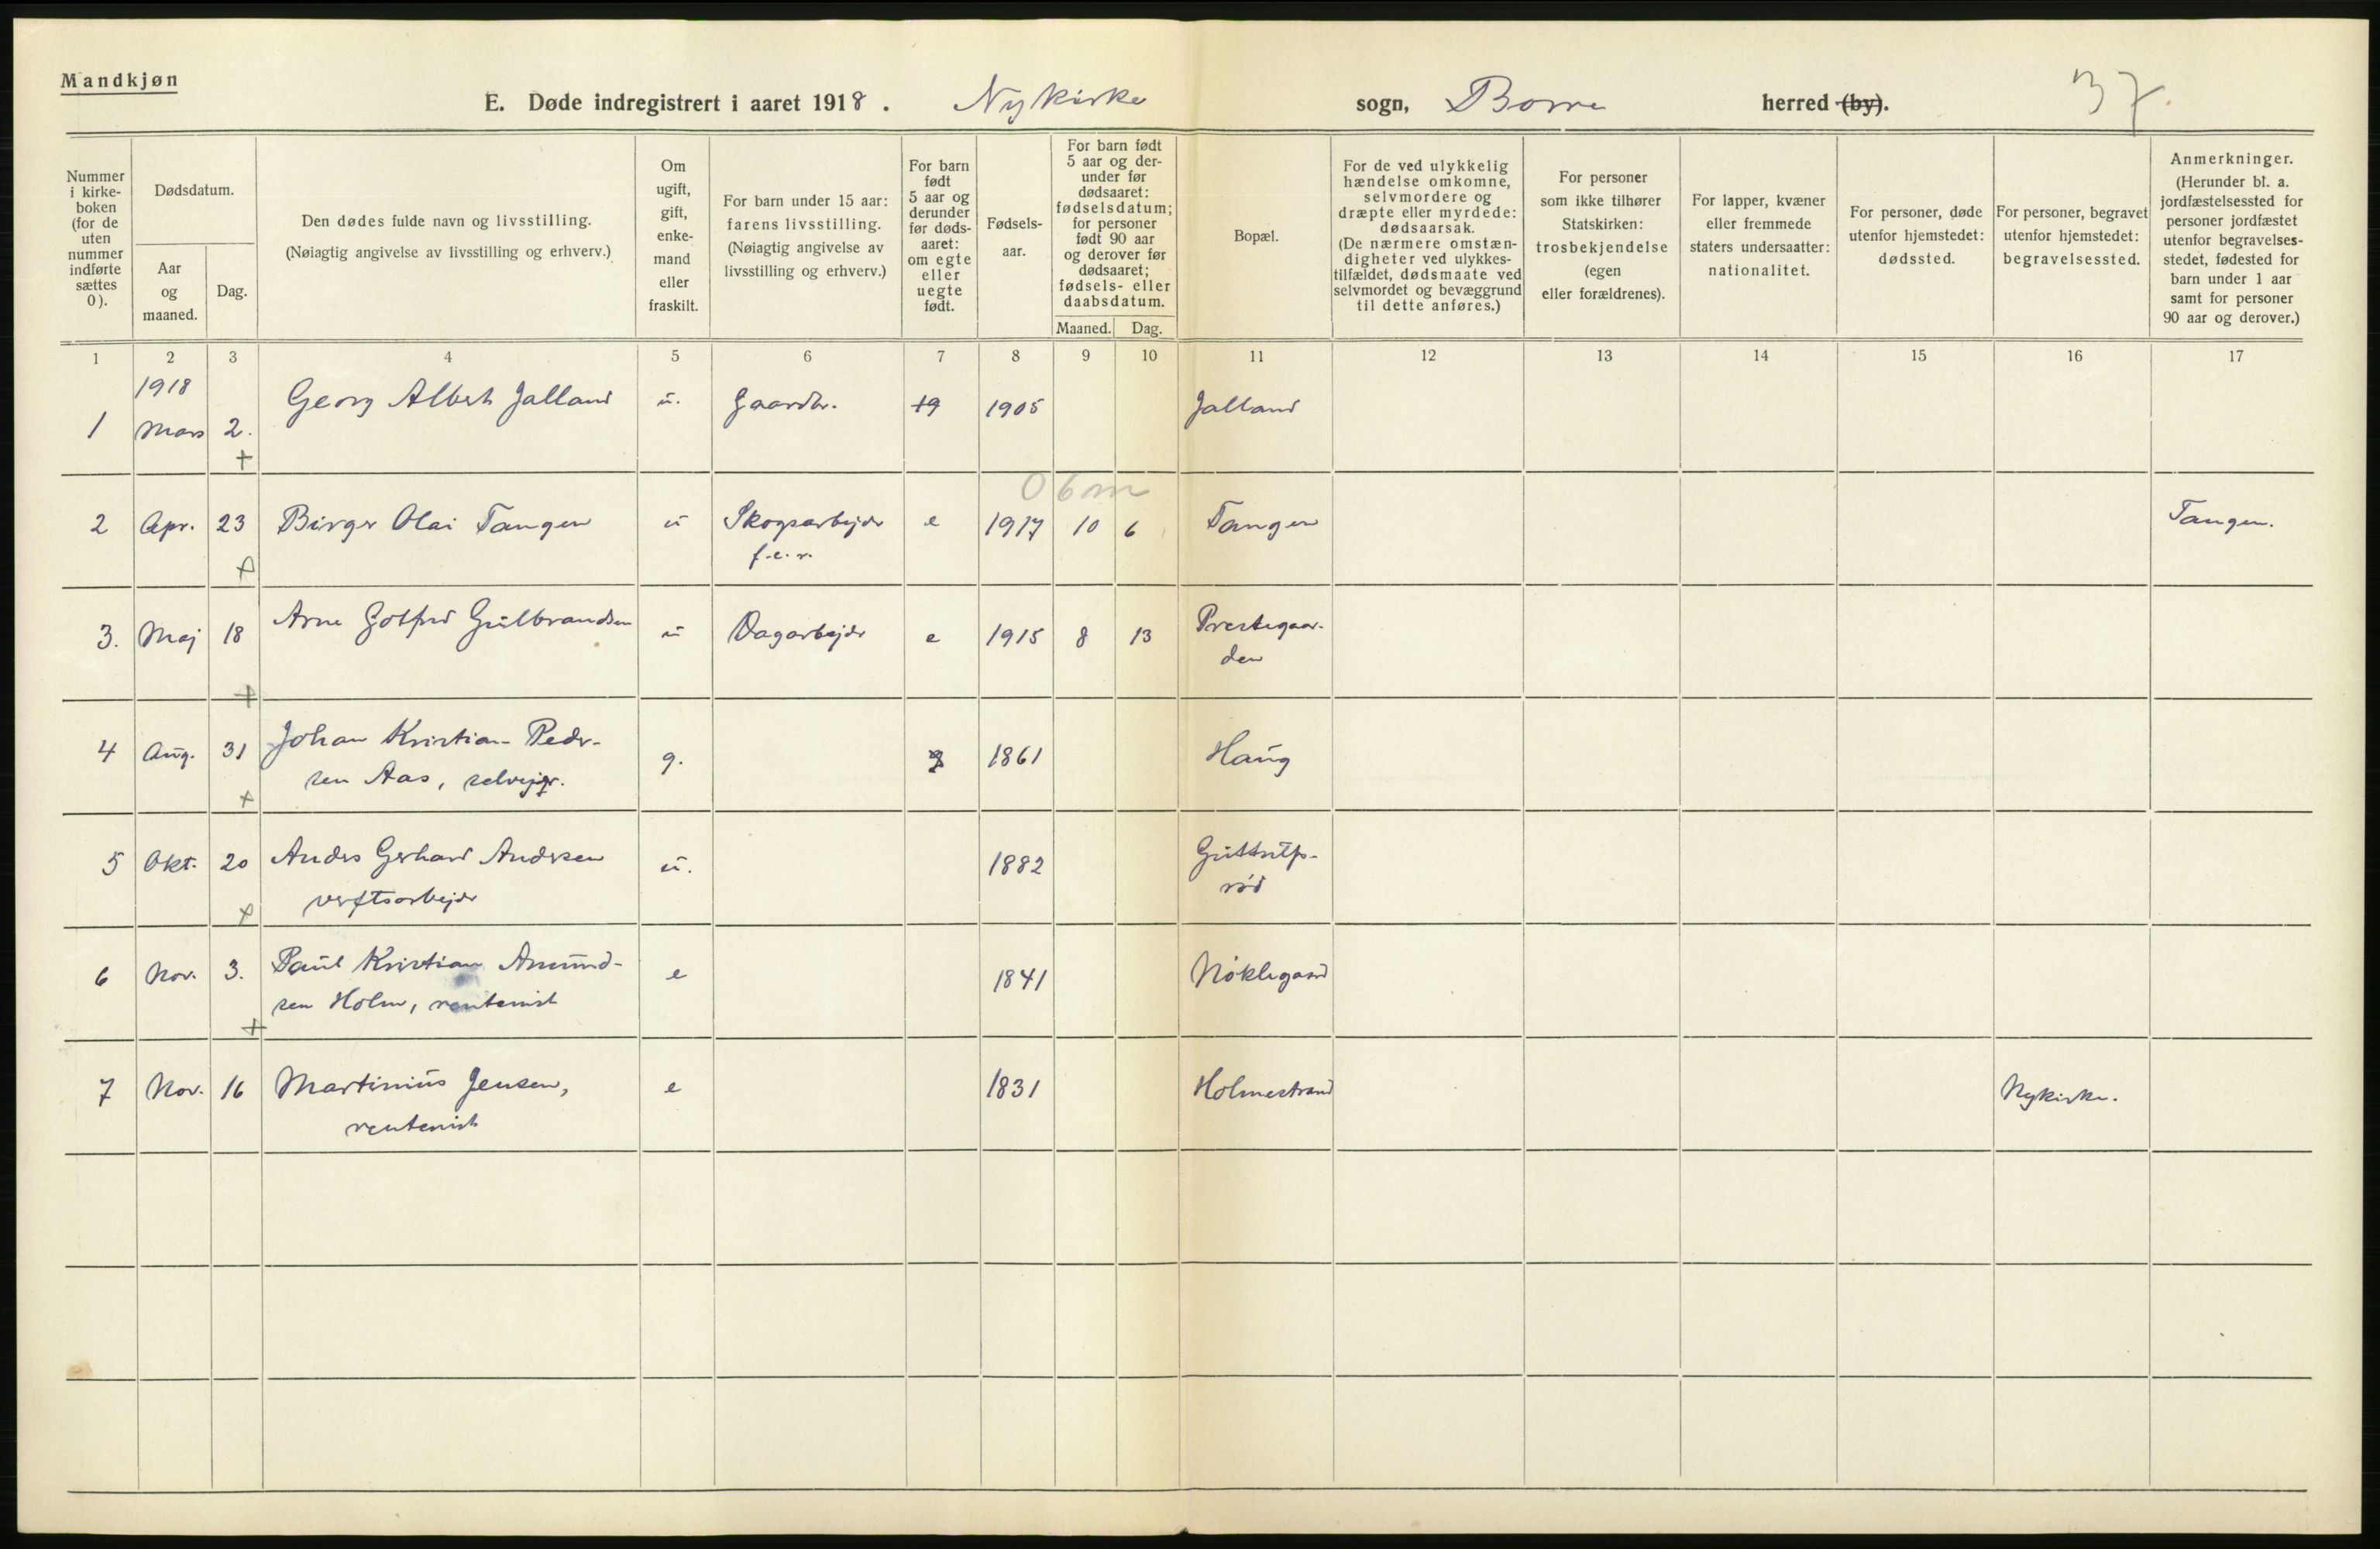 Mandkjøn
E. Døde indregistrert i aaret 1918. Nykirke sogn, Borre herred (by). 37.
Nummer i kirke-boken (for de uten nummer indførte sættes 0).
Dødsdatum.
Aar og maaned.
Dag.
Den dødes fulde navn og livsstilling.
(Nøiagtig angivelse av livsstilling og erhverv.)
Om ugift, gift, enke-mand eller fraskilt.
For barn under 15 aar: farens livsstilling.
(Nøiagtig angivelse av livsstilling og erhverv.)
For barn født 5 aar og derunder før døds-aaret: om egte eller uegte født.
Fødsels-aar.
For barn født 5 aar og der-under før dødsaaret: fødselsdatum; for personer født 90 aar og derover før dødsaaret; fødsels- eller daabsdatum.
Maaned. Dag.
Bopæl.
For de ved ulykkelig hændelse omkomne, selvmordere og dræpte eller myrdede: dødsaarsak.
(De nærmere omstæn-digheter ved ulykkes-tilfældet, dødsmaate ved selvmordet og bevæggrund til dette anføres.)
For personer som ikke tilhører Statskirken: trosbekjendelse (egen eller forældrenes).
For lapper, kvæner eller fremmede staters undersaatter: nationalitet.
For personer, døde utenfor hjemstedet: dødssted.
For personer, begravet utenfor hjemstedet: begravelsessted.
Anmerkninger.
(Herunder bl. a. jordfæstelsessted for personer jordfæstet utenfor begravelses-stedet, fødested for barn under 1 aar samt for personer 90 aar og derover.)
1 2 3 4 5 6 7 8 9 10 11 12 13 14 15 16 17
1918
1 Mars 2. Georg Albert Jalland u. Gaardbr. 1905 Jalland
+
0 6 m
2 Apr. 23 Birger Olai Tangen u Skogsarbejder e 1917 10 6 Tangen Tangen.
f.e.r.
+
3. Maj 18 Arne Gotfred Gulbrandsen u Dagarbejder e 1915 8 13 Prestegaar-
den
+
4 Aug. 31 Johan Kristian Peder-
sen Aas, selvejer. g. 1861 Haug
+
5 Okt. 20 Anders Gerhard Andersen u. 1882
verftsarbejder
rød
+
6 Nov. 3. Paul Kristian Amund-
sen Holm, rentenist e 1841 Nøklegaard
+
7 Nov. 16 Martinius Jensen, e 1831 Holmestrand Nykirke.
rentenist